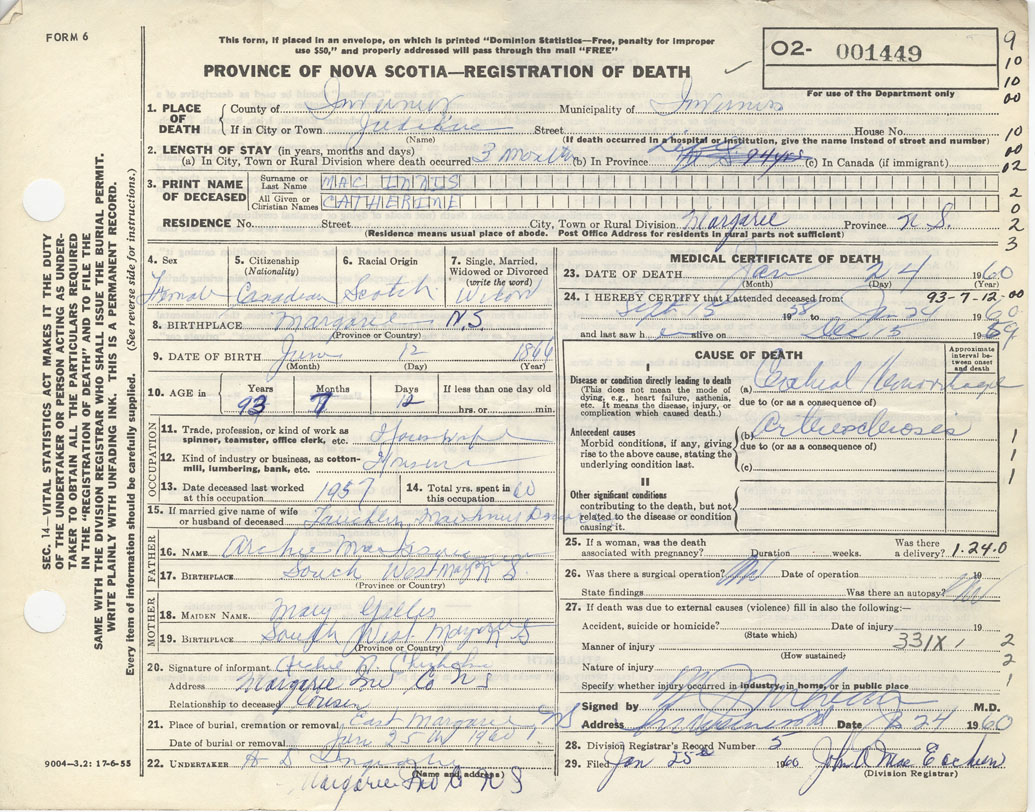 FORM 6
This form, if placed in an envelope, on which is printed "Dominion Statistics—Free, penalty for improper
use $50," and properly addressed will pass through the mail "FREE"
PROVINCE OF NOVA SCOTIA—REGISTRATION OF DEATH
O2- 001449
For use of the Department only
9
10
10
00
10
00
02
2
0
2
3
SEC. 14—VITAL STATISTICS ACT MAKES IT THE DUTY
OF THE UNDERTAKER OR PERSON ACTING AS UNDER-
TAKER TO OBTAIN ALL THE PARTICULARS REQUIRED
IN THE "REGISTRATION OF DEATH" AND TO FILE THE
SAME WITH THE DIVISION REGISTRAR WHO SHALL ISSUE THE BURIAL PERMIT.
WRITE PLAINLY WITH UNFADING INK. THIS IS A PERMANENT RECORD.
Every item of information should be carefully supplied. (See reverse side for instructions.)
1. PLACE OF DEATH County of Inverness Municipality of Inverness
If in City or Town Judique Street House No.
(Name) (If death occurred in a hospital or institution, give the name instead of street and number)
2. LENGTH OF STAY (in years, months and days)
(a) In City, Town or Rural Division where death occurred 3 Months (b) In Province Life 94 yrs (c) In Canada (if immigrant)
3. PRINT NAME OF DECEASED Surname or Last Name MAC INNIS
All Given or Christian Names CATHERINE
RESIDENCE No. Street City, Town or Rural Division Margaree Province N S.
(Residence means usual place of abode. Post Office Address for residents in rural parts not sufficient)
4. Sex Female
5. Citizenship (Nationality) Canadian
6. Racial Origin Scotch
7. Single, Married, Widowed or Divorced (write the word) Widow
8. BIRTHPLACE Margaree N.S
(Province or Country)
9. DATE OF BIRTH June 12 1866
(Month) (Day) (Year)
10. AGE in Years 93 Months 7 Days 12 If less than one day old hrs. or min.
OCCUPATION
11. Trade, profession or kind of work as spinner, teamster, office clerk, etc. Housewife
12. Kind of industry or business, as cotton-mill, lumbering, bank, etc.
13. Date deceased last worked at this occupation 1957
14. Total yrs. spent in this occupation 60
15. If married give name of wife or husband of deceased
FATHER
16. NAME Archie
17. BIRTHPLACE South West Margaree N S
(Province or Country)
MOTHER
18. MAIDEN NAME Mary Gillis
19. BIRTHPLACE South West Margaree N S
(Province or Country)
20. Signature of informant Archie R Chisholm
Address Margaree Inv Co N S
Relationship to deceased Cousin
21. Place of burial, cremation or removal East Margaree NS
Date of burial or removal Jan 25th 1960
22. UNDERTAKER
(Name and address)
Margaree N S
9004—3.2: 17-6-55
MEDICAL CERTIFICATE OF DEATH
23. DATE OF DEATH Jan 24 1960
(Month) (Day) (Year)
93-7-12-00
24. I HEREBY CERTIFY that I attended deceased from:
Sept 15 1958 to Jan 24 1960
and last saw h e alive on Dec 15 1959
CAUSE OF DEATH
Approximate interval between onset and death
I
Disease or condition directly leading to death
(This does not mean the mode of dying, e.g., heart failure, asthenia, etc. It means the disease, injury, or complication which caused death.)
(a) Cerebral Hemorrhage
due to (or as a consequence of)
Antecedent causes
Morbid conditions, if any, giving rise to the above cause, stating the underlying condition last.
(b) Arteriosclerosis
due to (or as a consequence of)
(c)
1
1
1
1
II
Other significant conditions
contributing to the death, but not related to the disease or condition causing it.
25. If a woman, was the death associated with pregnancy? Duration weeks. Was there a delivery? 1.24.0
26. Was there a surgical operation? No Date of operation 19
State findings Was there an autopsy? No
27. If death was due to external causes (violence) fill in also the following:—
Accident, suicide or homicide? Date of injury 19
(State which)
Manner of injury 331X 1 2
(How sustained)
Nature of injury 2
Specify whether injury occurred in industry, in home, or in public place 1
Signed by M.D.
Address Date 24 1960
28. Division Registrar's Record Number 5
29. Filed Jan 25th 1960 John A Mac Eachern
(Division Registrar)